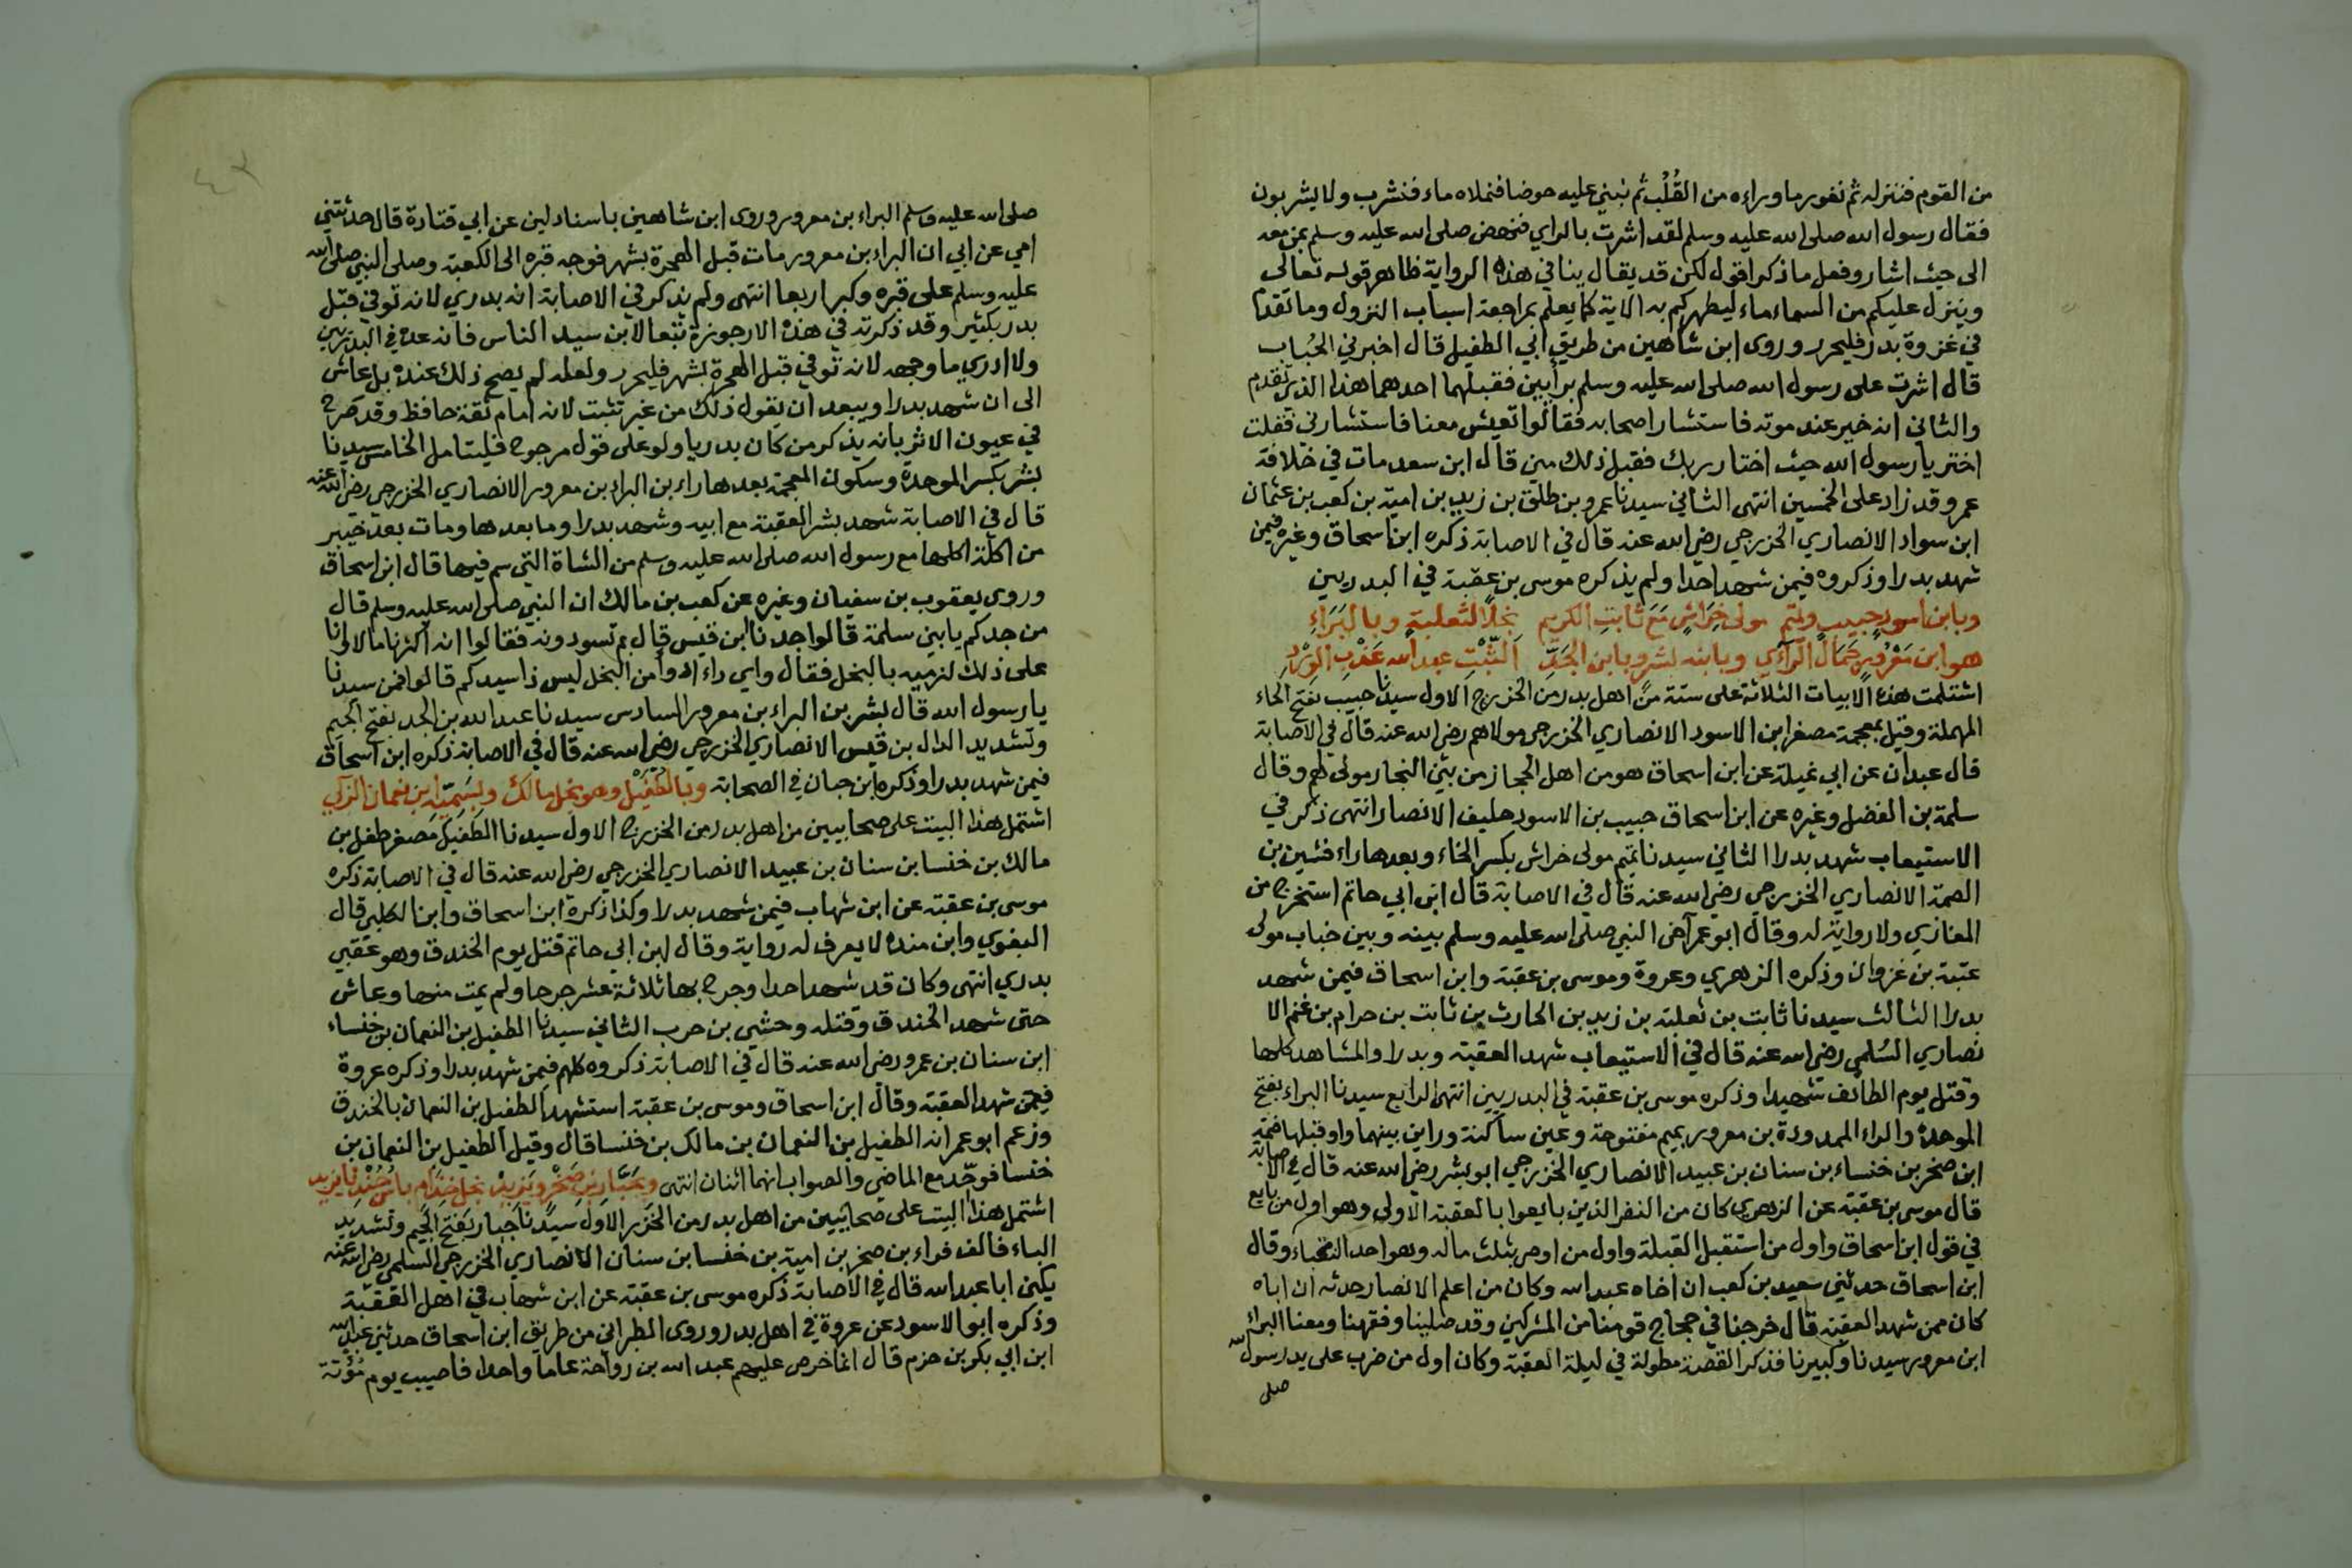 من القوم فننزله ثم نغور ما وراءه من القُلُب ثم نبني عليه حوضا فنملاه ماء فنشرب ولا يشربون
فقال رسول الله صلى الله عليه وسلم لقد اشرت بالراي فنهض صلى الله عليه وسلم بمن معه
الى حيث اشار وفعل ما ذكر اقول لكن قد يقال ينافي هذه الرواية ظاهر قوله تعالى
وينزل عليكم من السماء ماء ليطهركم به الاية كما يعلم بمراجعة اسباب النزول وما تقدم
في غزوة بدر فليحرر وروى ابن شاهين من طريق ابي الطفيل قال اخبرني الحُباب
قال اشرت على رسول الله صلى الله عليه وسلم برأيين فقبلهما احدهما هذا الذي تقدم
والثاني انه خير عند موته فاستشار اصحابه فقالوا تعيش معنا فاستشارني فقلت
اختر يا رسول الله حيث اختار ربك فقبل ذلك مني قال ابن سعد مات في خلافة
عمر وقد زاد على الخمسين انتهى الثاني سيدنا عمرو بن طلق بن زيد بن امية بن كعب بن عثمان
ابن سواد الانصاري الخزرجي رضي الله عنه قال في الاصابة ذكره ابن اسحاق وغيره فيمن
شهد بدرا وذكروه فيمن شهد احدا ولم يذكره موسى بن عقبة في البدريين
وبابن اسود حبيب وتم مولى خراش مع ثابت الكريم نجلا لثعلبة وبالبَرَاءِ
هو ابن مَعْرُورٍ جَمَال الرَّآءِي وبابنه بشر وبابن الجَدِّ الثَّبْتِ عبد الله عَذْبِ الوِرْدِ
اشتلمت هذه الابيات الثلاثة على ستة من اهل بدر من الخزرج الاول سيدنا حبيب بفتح الحاء
المهملة وقيل بمعجمة مصغر ابن الاسود الانصاري الخزرجي مولاهم رضي الله عنه قال في الاصابة
قال عبدان عن ابي غيلة عن ابن اسحاق هو من اهل الحجاز من بني النجار مولى لهم وقال
سلمة بن الفضل وغيره عن ابن اسحاق حبيب بن الاسود حليف الانصار انتهى ذكر في
الاستيعاب شهد بدرا الثاني سيدنا تميم مولى خراش بكسر الخاء وبعدها راء فشين بن
الصمة الانصاري الخزرجي رضي الله عنه قال في الاصابة قال ابن ابي حاتم استخرج من
المغازي ولا رواية له وقال ابو عمر آخى النبي صلى الله عليه وسلم بينه وبين خباب مولى
عتبة بن غزوان وذكره الزهري وعروة وموسى بن عقبة وابن اسحاق فيمن شهد
بدرا الثالث سيدنا ثابت بن ثعلبة بن زيد بن الحارث بن ثابت بن حرام بن غنم الا
نصاري السُلمي رضي الله عنه قال في الاستيعاب شهد العقبة وبدرا والمشاهد كلها
وقتل يوم الطائف شهيدا وذكره موسى بن عقبة في البدريين انتهى الرابع سيدنا البراء بفتح
الموحدة والراء الممدودة بن معرور بميم مفتوحة وعين ساكنة وراين بينهما واو قبلها ضمة
ابن صخر بن خنساء بن سنان بن عبيد الانصاري الخزرجي ابو بشر رضي الله عنه قال في الاصابة
قال موسى بن عقبة عن الزهري كان من النفر الذين بايعوا بالعقبة الاولى وهو اول من بايع
في قول ابن اسحاق واول من استقبل القبلة واول من اوصى بثلث ماله وهو احد النقباء وقال
ابن اسحاق حدثني سعيد بن كعب ان اخاه عبد الله وكان من اعلم الانصار حدثه ان اباه
كان ممن شهد العقبة قال خرجنا في حجاج قومنا من المشركين وقد صلينا وفقهنا ومعنا البراء
ابن معرور سيدنا وكبيرنا فذكر القصة مطولة في ليلة العقبة وكان اول من ضرب على يد رسول الله
صلى
صلى الله عليه وسلم البراء بن معرور وروى ابن شاهين باسناد لين عن ابي قتادة قال حدثتني
امي عن ابي ان البراء بن معرور مات قبل الهجرة بشهر فوجه قبره الى الكعبة وصلى النبي صلى الله
عليه وسلم على قبره وكبر اربعا انتهى ولم يذكر في الاصابة انه بدري لانه توفي قبل
بدر بكثير وقد ذكرته في هذه الارجوزة تبعا لابن سيد الناس فانه عده في البدريين
ولا ادري ما وجهه لانه توفي قبل الهجرة بشهر فليحرر ولعله لم يصح ذلك عنده بل عاش
الى ان شهد بدرا ويبعد ان يقول ذلك من غير تثبت لانه امام ثقة حافظ وقد صرح
في عيون الاثر بانه يذكر من كان بدريا ولو على قول مرجوح فليتامل الخامس سيدنا
بشر بكسر الموحدة وسكون المعجمة بعدها راء بن البراء بن معرور الانصاري الخزرجي رضي الله عنه
قال في الاصابة شهد بشر العقبة مع ابيه وشهد بدرا وما بعدها ومات بعد خيبر
من اكلة اكلها مع رسول الله صلى الله عليه وسلم من الشاة التي سم فيها قال ابن اسحاق
وروى يعقوب بن سفيان وغيره عن كعب بن مالك ان النبي صلى الله عليه وسلم قال
من جدكم يا بني سلمة قالوا جدنا ابن قيس قال بم تسودونه فقالوا انه اكثرنا مالا وانا
على ذلك لنزنيه بالبخل فقال واي داء ادوأ من البخل ليس ذا سيدكم قالوا فمن سيدنا
يا رسول الله قال بشر بن البراء بن معرور السادس سيدنا عبد الله بن الجد بفتح الجيم
وتشديد الدال بن قيس الانصاري الخزرجي رضي الله عنه قال في الاصابة ذكره ابن اسحاق
فيمن شهد بدرا وذكره ابن حبان في الصحابة وبالطُّفَيْل وهو نجل مالك وبسَمِيِّه ابن نعمان الزكي
اشتمل هذا البيت على صحابيين من اهل بدر من الخزرج الاول سيدنا الطفيل مصغر طفل بن
مالك بن خنسا بن سنان بن عبيد الانصاري الخزرجي رضي الله عنه قال في الاصابة ذكره
موسى بن عقبة عن ابن شهاب فيمن شهد بدرا وكذا ذكره ابن اسحاق وابن الكلبي قال
البغوي وابن منده لا يعرف له رواية وقال ابن ابي حاتم قتل يوم الخندق وهو عقبي
بدري انتهى وكان قد شهد احدا وجرح بها ثلاثة عشر جرحا ولم يمت منها وعاش
حتى شهد الخندق وقتله وحشي بن حرب الثاني سيدنا الطفيل بن النعمان بن خنساء
ابن سنان بن عمرو رضي الله عنه قال في الاصابة ذكروه كلهم فيمن شهد بدرا وذكره عروة
فيمن شهد العقبة وقال ابن اسحاق وموسى بن عقبة استشهد الطفيل بن النعمان بالخندق
وزعم ابو عمر انه الطفيل بن النعمان بن مالك بن خنسا قال وقيل الطفيل بن النعمان بن
خنسا فوحّد مع الماضي والصواب انهما اثنان انتهى وبجبّار بن صَخْر ويَزِيدْ نجل خِذَام
اشتمل هذا البيت على صحابيين من اهل بدر من الخزرج الاول سيدنا جبار بفتح الجيم وتشديد
الباء فالف فراء بن صخر بن امية بن خنسا بن سنان الانصاري الخزرجي السلمي رضي الله عنه
يكنى ابا عبد الله قال في الاصابة ذكره موسى بن عقبة عن ابن شهاب في اهل العقبة
وذكره ابو الاسود عن عروة في اهل بدر وروى الطبراني من طريق ابن اسحاق حدثني عبد الله
ابن ابي بكر بن حزم قال انما خرص عليهم عبد الله بن رواحة عاما واحدا فاصيب يوم مُؤتة